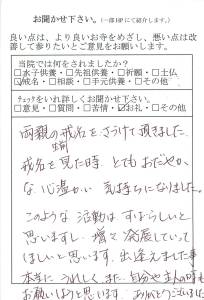 お聞かせ下さい。(一部HPにて紹介します。)
良い点は、より良いお寺をめざし、悪い点は改
善して参りたいとご意見をお願いします。
当院では何をされましたか?
□水子供養・□先祖供養・□祈願・□土仏
☑戒名・□相談・□手元供養・□その他
チェックをいれ詳しくお聞かせ下さい。
□意見・□質問・□苦情・☑お礼・□その他
両親の戒名をさずけて頂きました。
戒名を見た時 とてもおだやか
な心温かい気持ちになりました。
このような活動はすばらしいと
思いますし、増々発展していって
ほしいと思います。出逢えました事
本当にうれしく、また、自分や主人の時も
お願いしようと思います。ありがとうございました